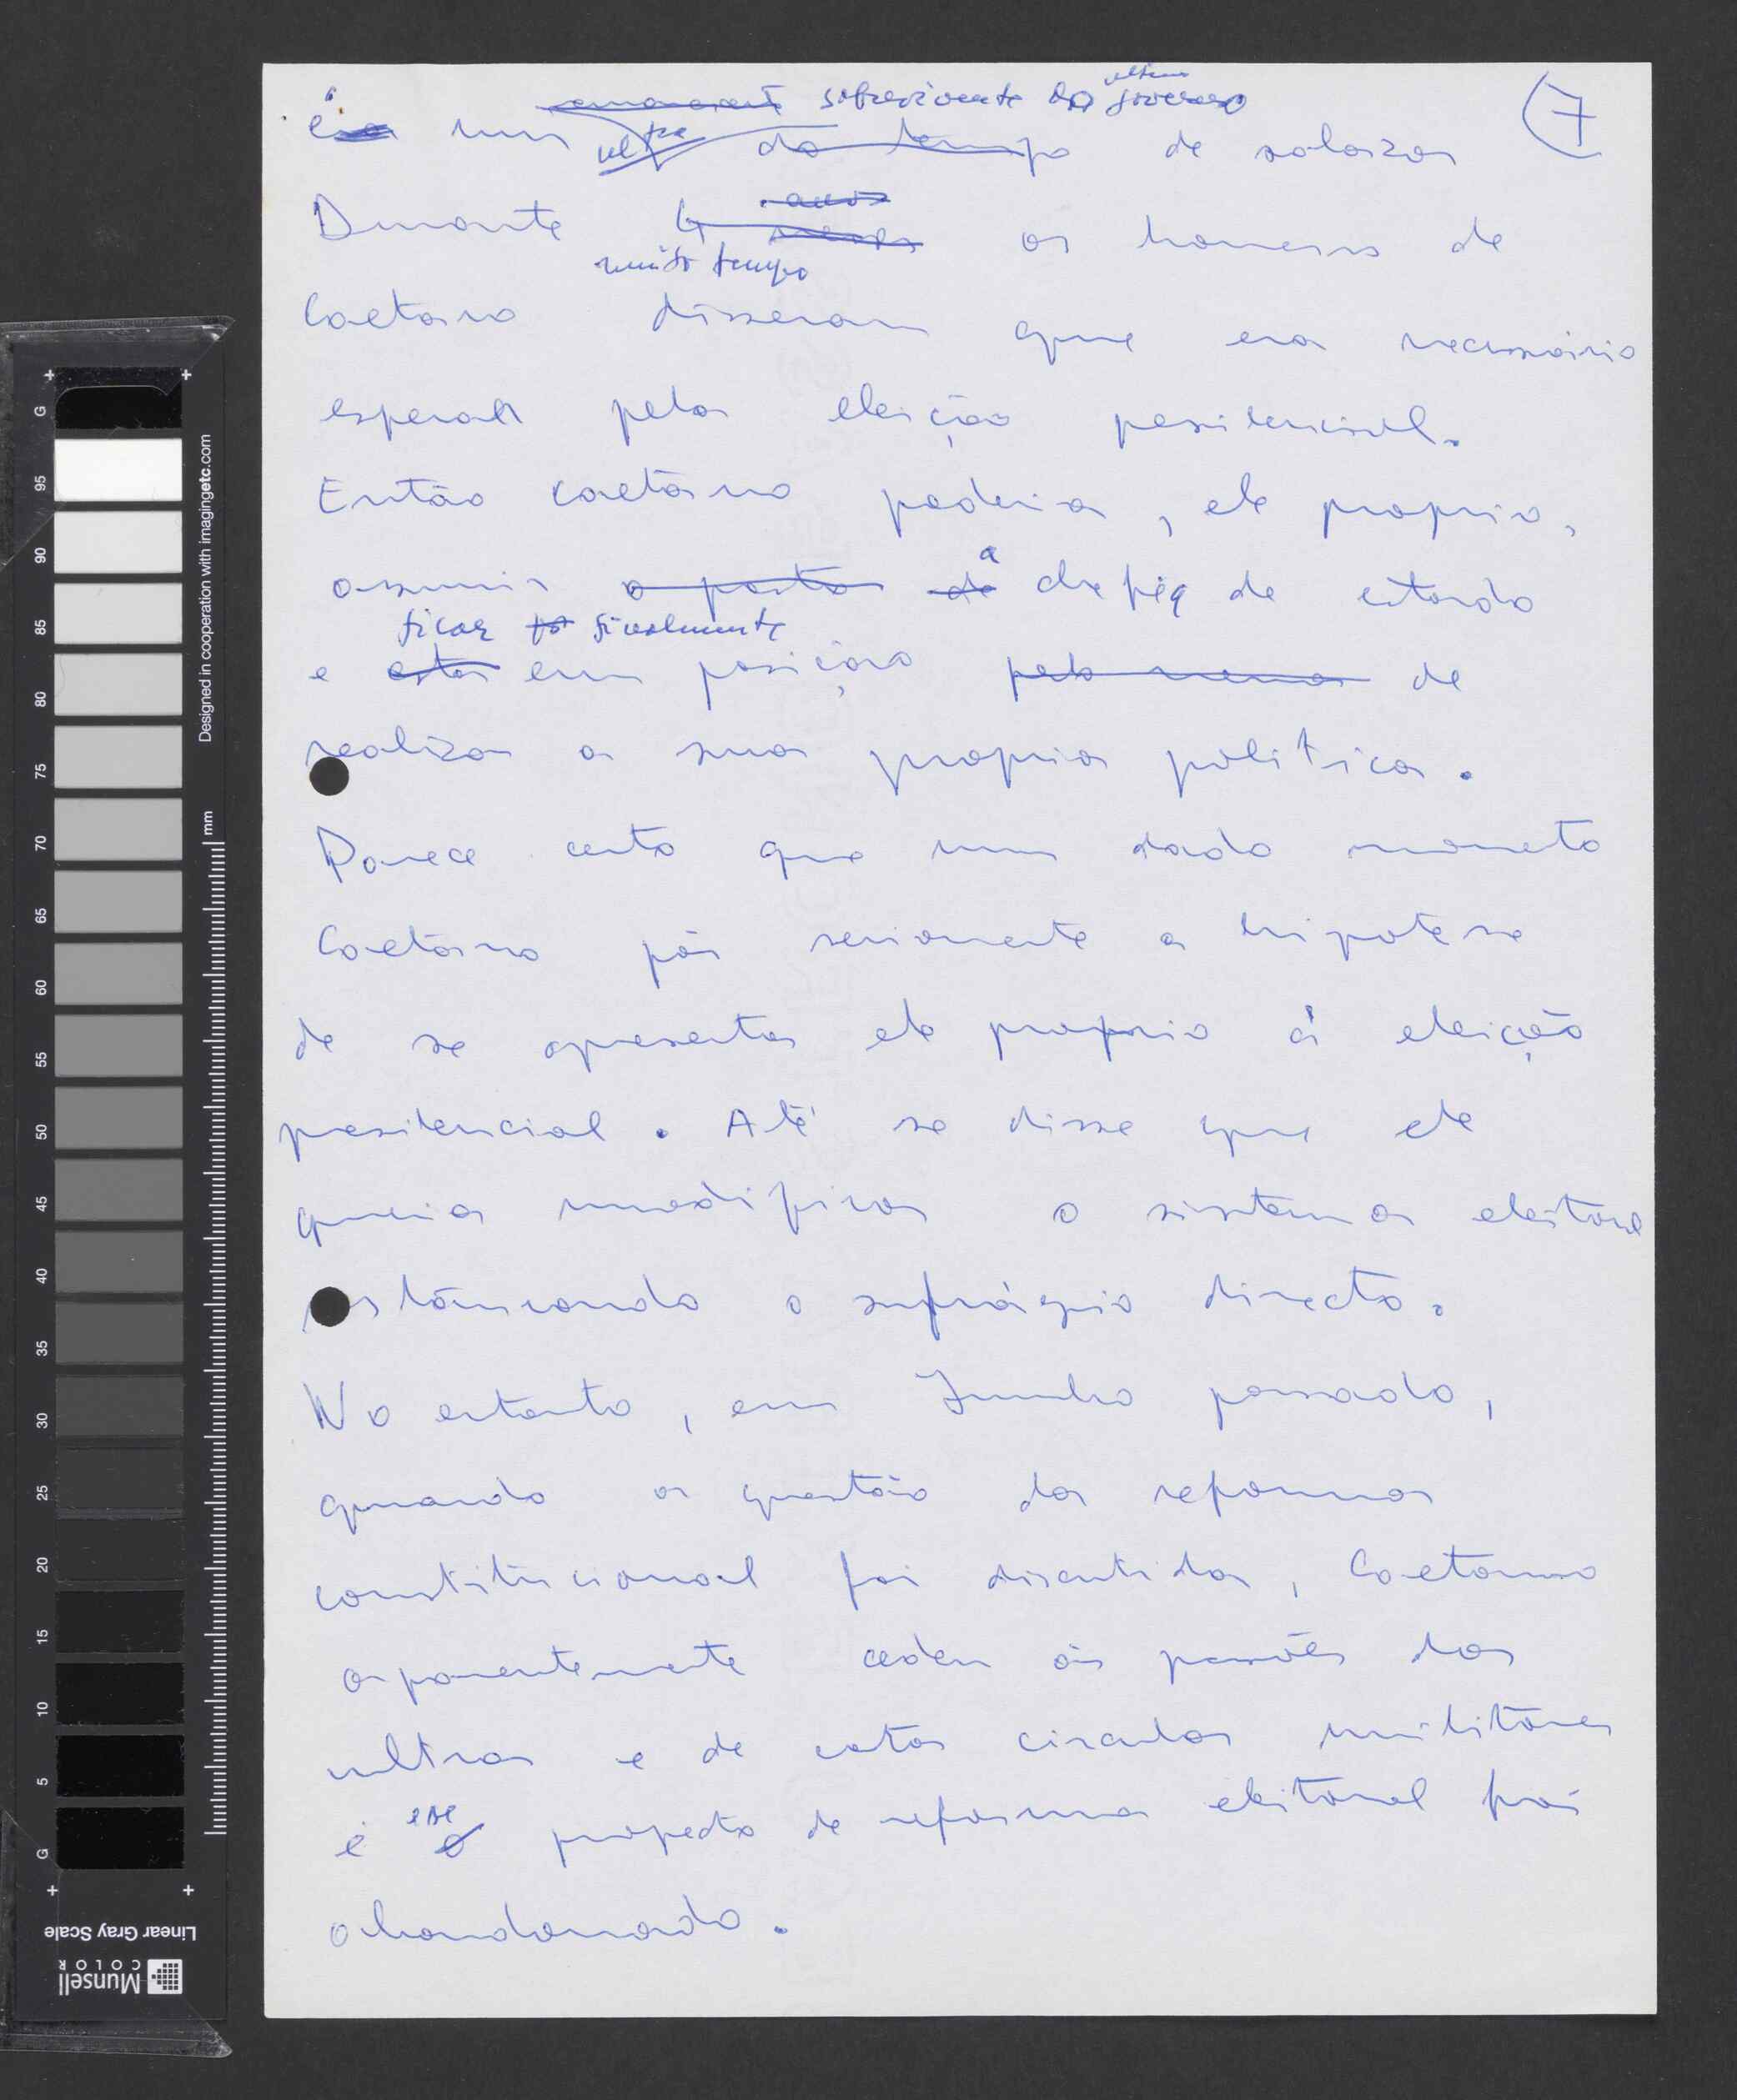 7
sobrevivente do ultimo governo
é um ultra do tempo de salazar
anos
Durante 4 meses os homens de
muito tempo
Caetano disseram que era necessário
esperar pela eleição pesidencial.
Então Caetano poderia, ele proprio,
a
assumir o posto de chefia de estado
ficar finalmente
e estar em posição pelo menos de
realizar a sua propria politica.
Parece certo que num dado momento
Caetano pôs seriamente a hipotese
de se apresentar ele proprio á eleição
presidencial. Até se disse que ele
queria modificar o sistema eleitoral
restaurando o sufrágio directo.
No entanto, em Junho passado,
quando a questão da reforma
constitucional foi discutida, Caetano
aparentemente cedeu ás pressões dos
ultras e de certos circulos militares
esse
e o projecto de reforma eleitoral foi
abandonado.
G 95 90 85 80 75 70 65 60 55 50 45 40 35 30 25 20 15 10 5 G
mm
Designed in cooperation with imagingetc.com
Linear Gray Scale
Munsell
COLOR